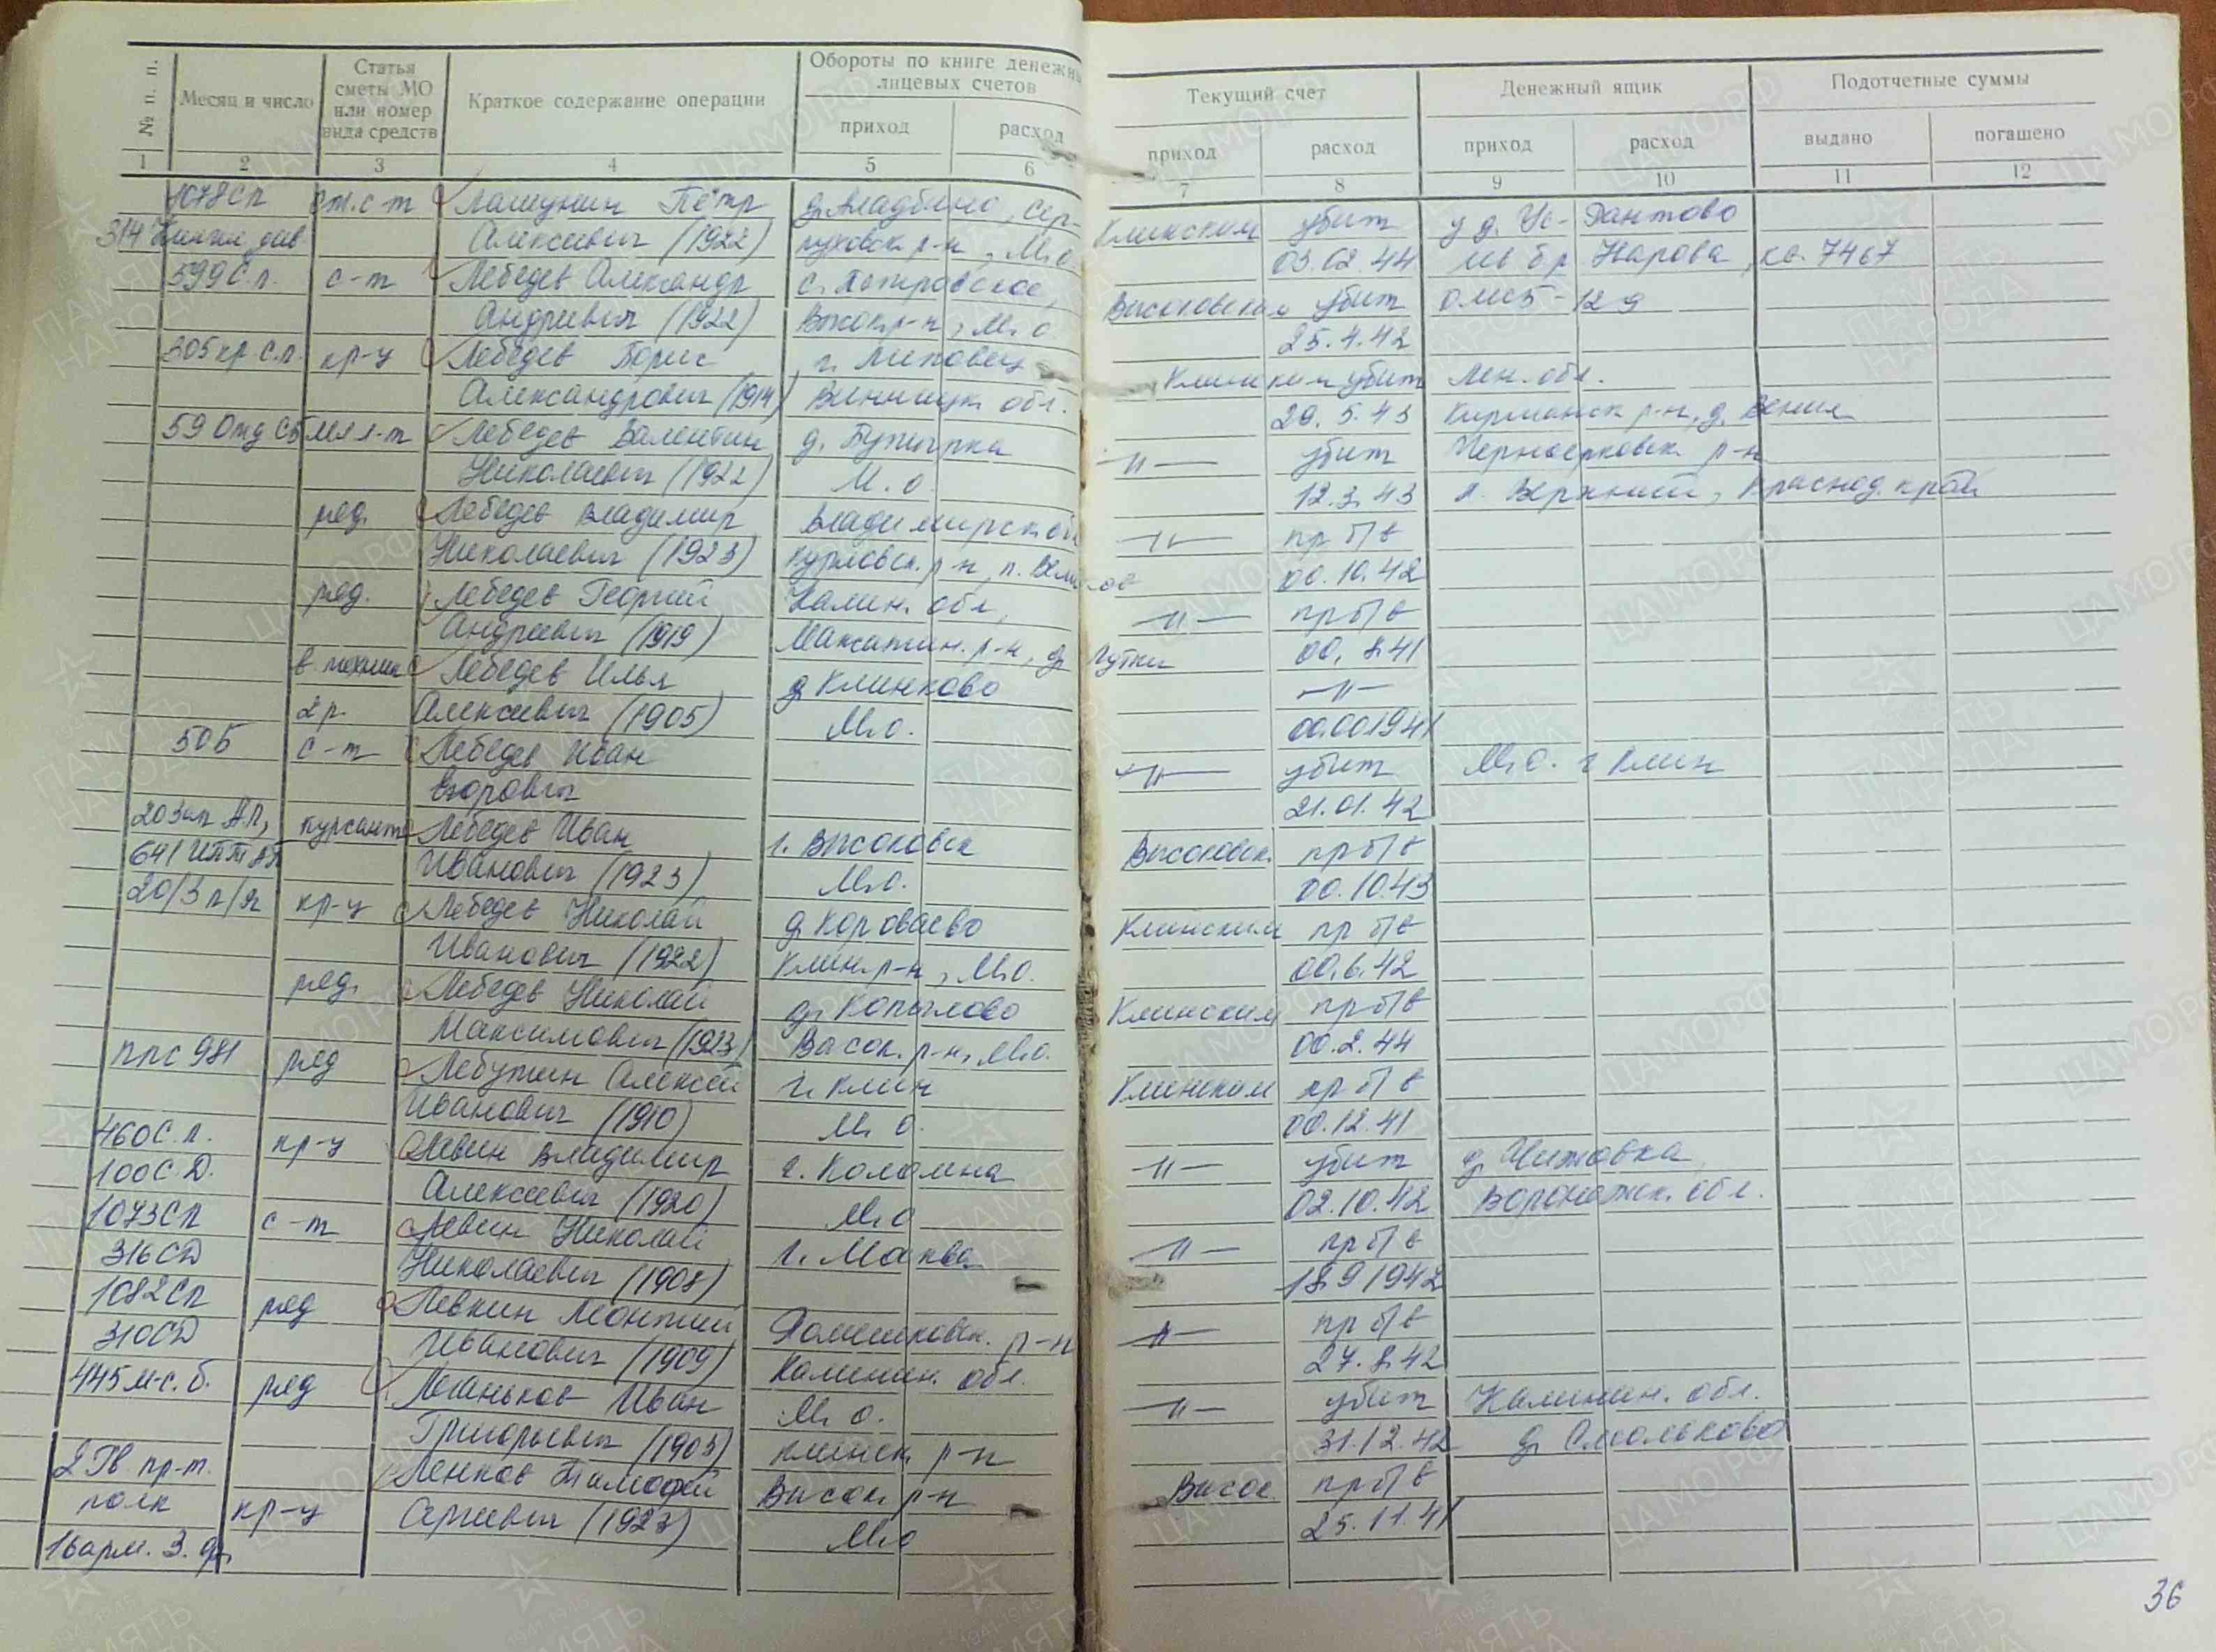 № п. п.
Месяц и число
Статья сметы МО или номер вида средств
Краткое содержание операции
Обороты по книге денежн лицевых счетов
приход расход
Текущий счет
приход расход
Денежный ящик
приход расход
Подотчетные суммы
выдано погашено
1 2 3 4 5 6 7 8 9 10 11 12
1078 СП ст. с-т Лашунин Пётр д. Владычно, Сер- Клинским убит у д.
314 див Алексеевич (1922) пуховск. р-н, М.О 03.02.44 Нарова, кв. 7467
599 С.п. с-т Лебедев Александр с. Петровское, Высоковским убит ОМСБ-129
Андреевич (1922) Высок. р-н, М.О. 25.4.42
305 кр С.п. кр-ц Лебедев Борис г. Липовец Клинским убит Лен. обл.
Александрович (1914) Винницк. обл. 29.5.43 р-н, д.
59 Отд СБ мл л-т Лебедев Валентин д. Бутырка —"— убит Черноерковск. р-н
Николаевич (1922) М.О. 12.3.43 х. Верхний, Краснод. край
ряд. Лебедев Владимир Владимирской —"— пр б/в
Николаевич (1923) Курловск. р-н, п. 00.10.42
ряд. Лебедев Георгий Калин. обл, —"— пр б/в
Андреевич (1919) Максатин. р-н, д. 00.8.41
в. техник Лебедев Илья д Клинково —"—
2 р. Алексеевич (1905) М.О. 00.00.1941
50Б с-т Лебедев Иван —"— убит М.О. г Клин
Егорович 21.01.42
20 зап АП, курсант Лебедев Иван г. Высоковск Высоковск. пр б/в
641 ИПТАП Иванович (1923) М.О. 00.10.43
20/3 п/я кр-ц Лебедев Николай д Короваево Клинским пр б/в
Иванович (1922) Клин. р-н, М.О. 00.6.42
ряд. Лебедев Николай д. Копылово Клинским пр б/в
Максимович (1923) Высок. р-н, М.О. 00.2.44
ппс 981 ряд Лебутин Алексей г. Клин Клинским пр б/в
Иванович (1910) М.О. 00.12.41
460 С.п. кр-ц Левин Владимир г. Коломна —"— убит д. Чижовка,
100 С.Д. Алексеевич (1920) М.О 02.10.42 Воронежск. обл.
1073 СП с-т Левин Николай г. Москва —"— пр б/в
316 СД Николаевич (1908) 18.9 1942
1082 СП ряд Левкин Леонтий р-н —"— пр б/в
310 СД Иванович (1909) Калинин. обл. 27.8.42
445 м.с.б. ряд Леганьков Иван М.О. —"— убит Калинин. обл.
Григорьевич (1903) Клинск. р-н 31.12.42 д Смольково
2 Гв. пр-т. Ленков Тимофей Высок. р-н Высок. пр б/в
полк кр-ц Сергеевич (1923) М.О 25.11.41
16 арм. З. ф.
36